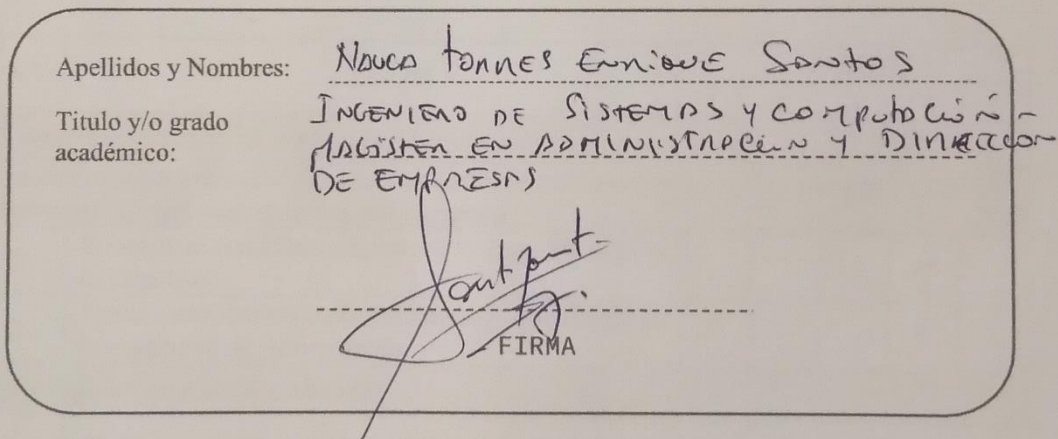 Apellidos y Nombres: Nauca Torres Enrique Santos
Titulo y/o grado académico: Ingeniero de Sistemas y Computación -
Magister en Administración y Dirección
de Empresas
FIRMA